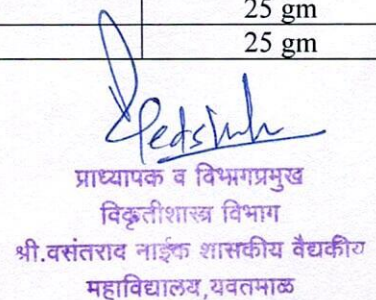 25 gm
25 gm
प्राध्यापक व विभागप्रमुख
विकृतीशास्त्र विभाग
श्री.वसंतराव नाईक शासकीय वैद्यकीय
महाविद्यालय,यवतमाळ